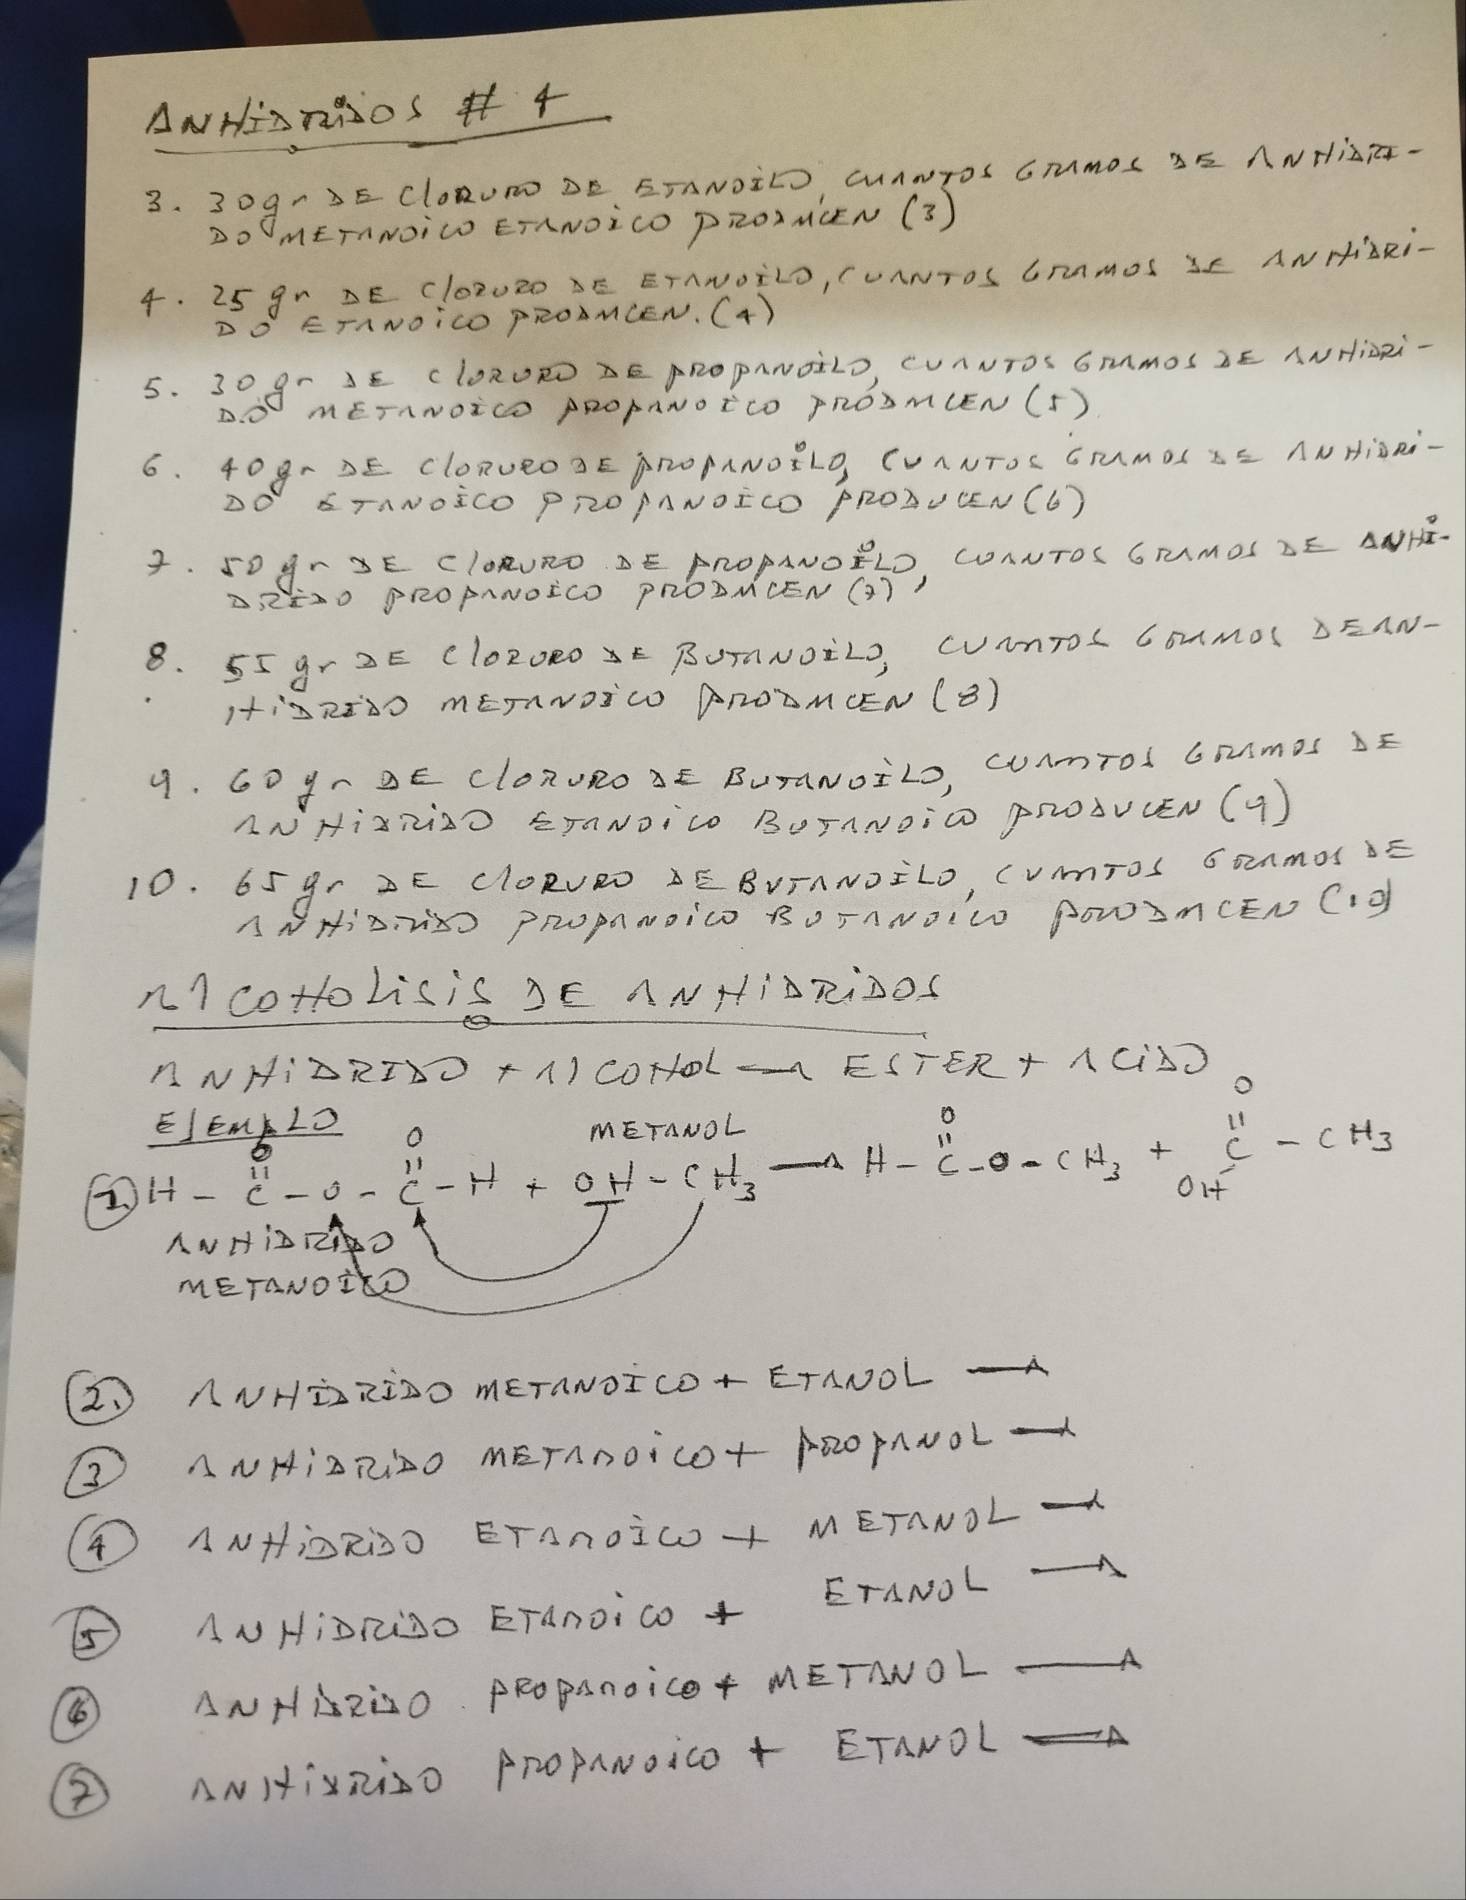 ANHIDRIDOS # 4
3. 30gr DE CLORURO DE ETANOILO, CUANTOS GRAMOS DE ANHIDRI-
DO METANOICO ETANOICO PRODUCEN (3)
4. 25 gr DE CLORURO DE ETANOILO, CUANTOS GRAMOS DE ANHIDRI-
DO ETANOICO PRODUCEN. (4)
5. 30gr DE CLORURO DE PROPANOILO, CUANTOS GRAMOS DE ANHIDRI-
DO METANOICO PROPANOICO PRODUCEN (5)
6. 40gr DE CLORURO DE PROPANOILO, CUANTOS GRAMOS DE ANHIDRI-
DO ETANOICO PROPANOICO PRODUCEN (6)
7. 50 gr DE CLORURO DE PROPANOILO, CUANTOS GRAMOS DE ANHI-
DRIDO PROPANOICO PRODUCEN (7)
8. 55 gr DE CLORURO DE BUTANOILO, CUANTOS GRAMOS DE AN-
HIDRIDO METANOICO PRODUCEN (8)
9. 60 gr DE CLORURO DE BUTANOILO, CUANTOS GRAMOS DE
ANHIDRIDO ETANOICO BUTANOICO PRODUCEN (9)
10. 65 gr DE CLORURO DE BUTANOILO, CUANTOS GRAMOS DE
ANHIDRIDO PROPANOICO BUTANOICO PRODUCEN (10)
ALCOHOLISIS DE ANHIDRIDOS
ANHIDRIDO + ALCOHOL → ESTER + ACIDO
EJEMPLO
METANOL
O O O O
" " " "
1. H - C - O - C - H + OH - CH3 → H - C - O - CH3 + C - CH3
OH
ANHIDRIDO
METANOICO
2. ANHIDRIDO METANOICO + ETANOL →
3 ANHIDRIDO METANOICO + PROPANOL →
4 ANHIDRIDO ETANOICO + METANOL →
5 ANHIDRIDO ETANOICO + ETANOL →
6 ANHIDRIDO PROPANOICO + METANOL →
7 ANHIDRIDO PROPANOICO + ETANOL →